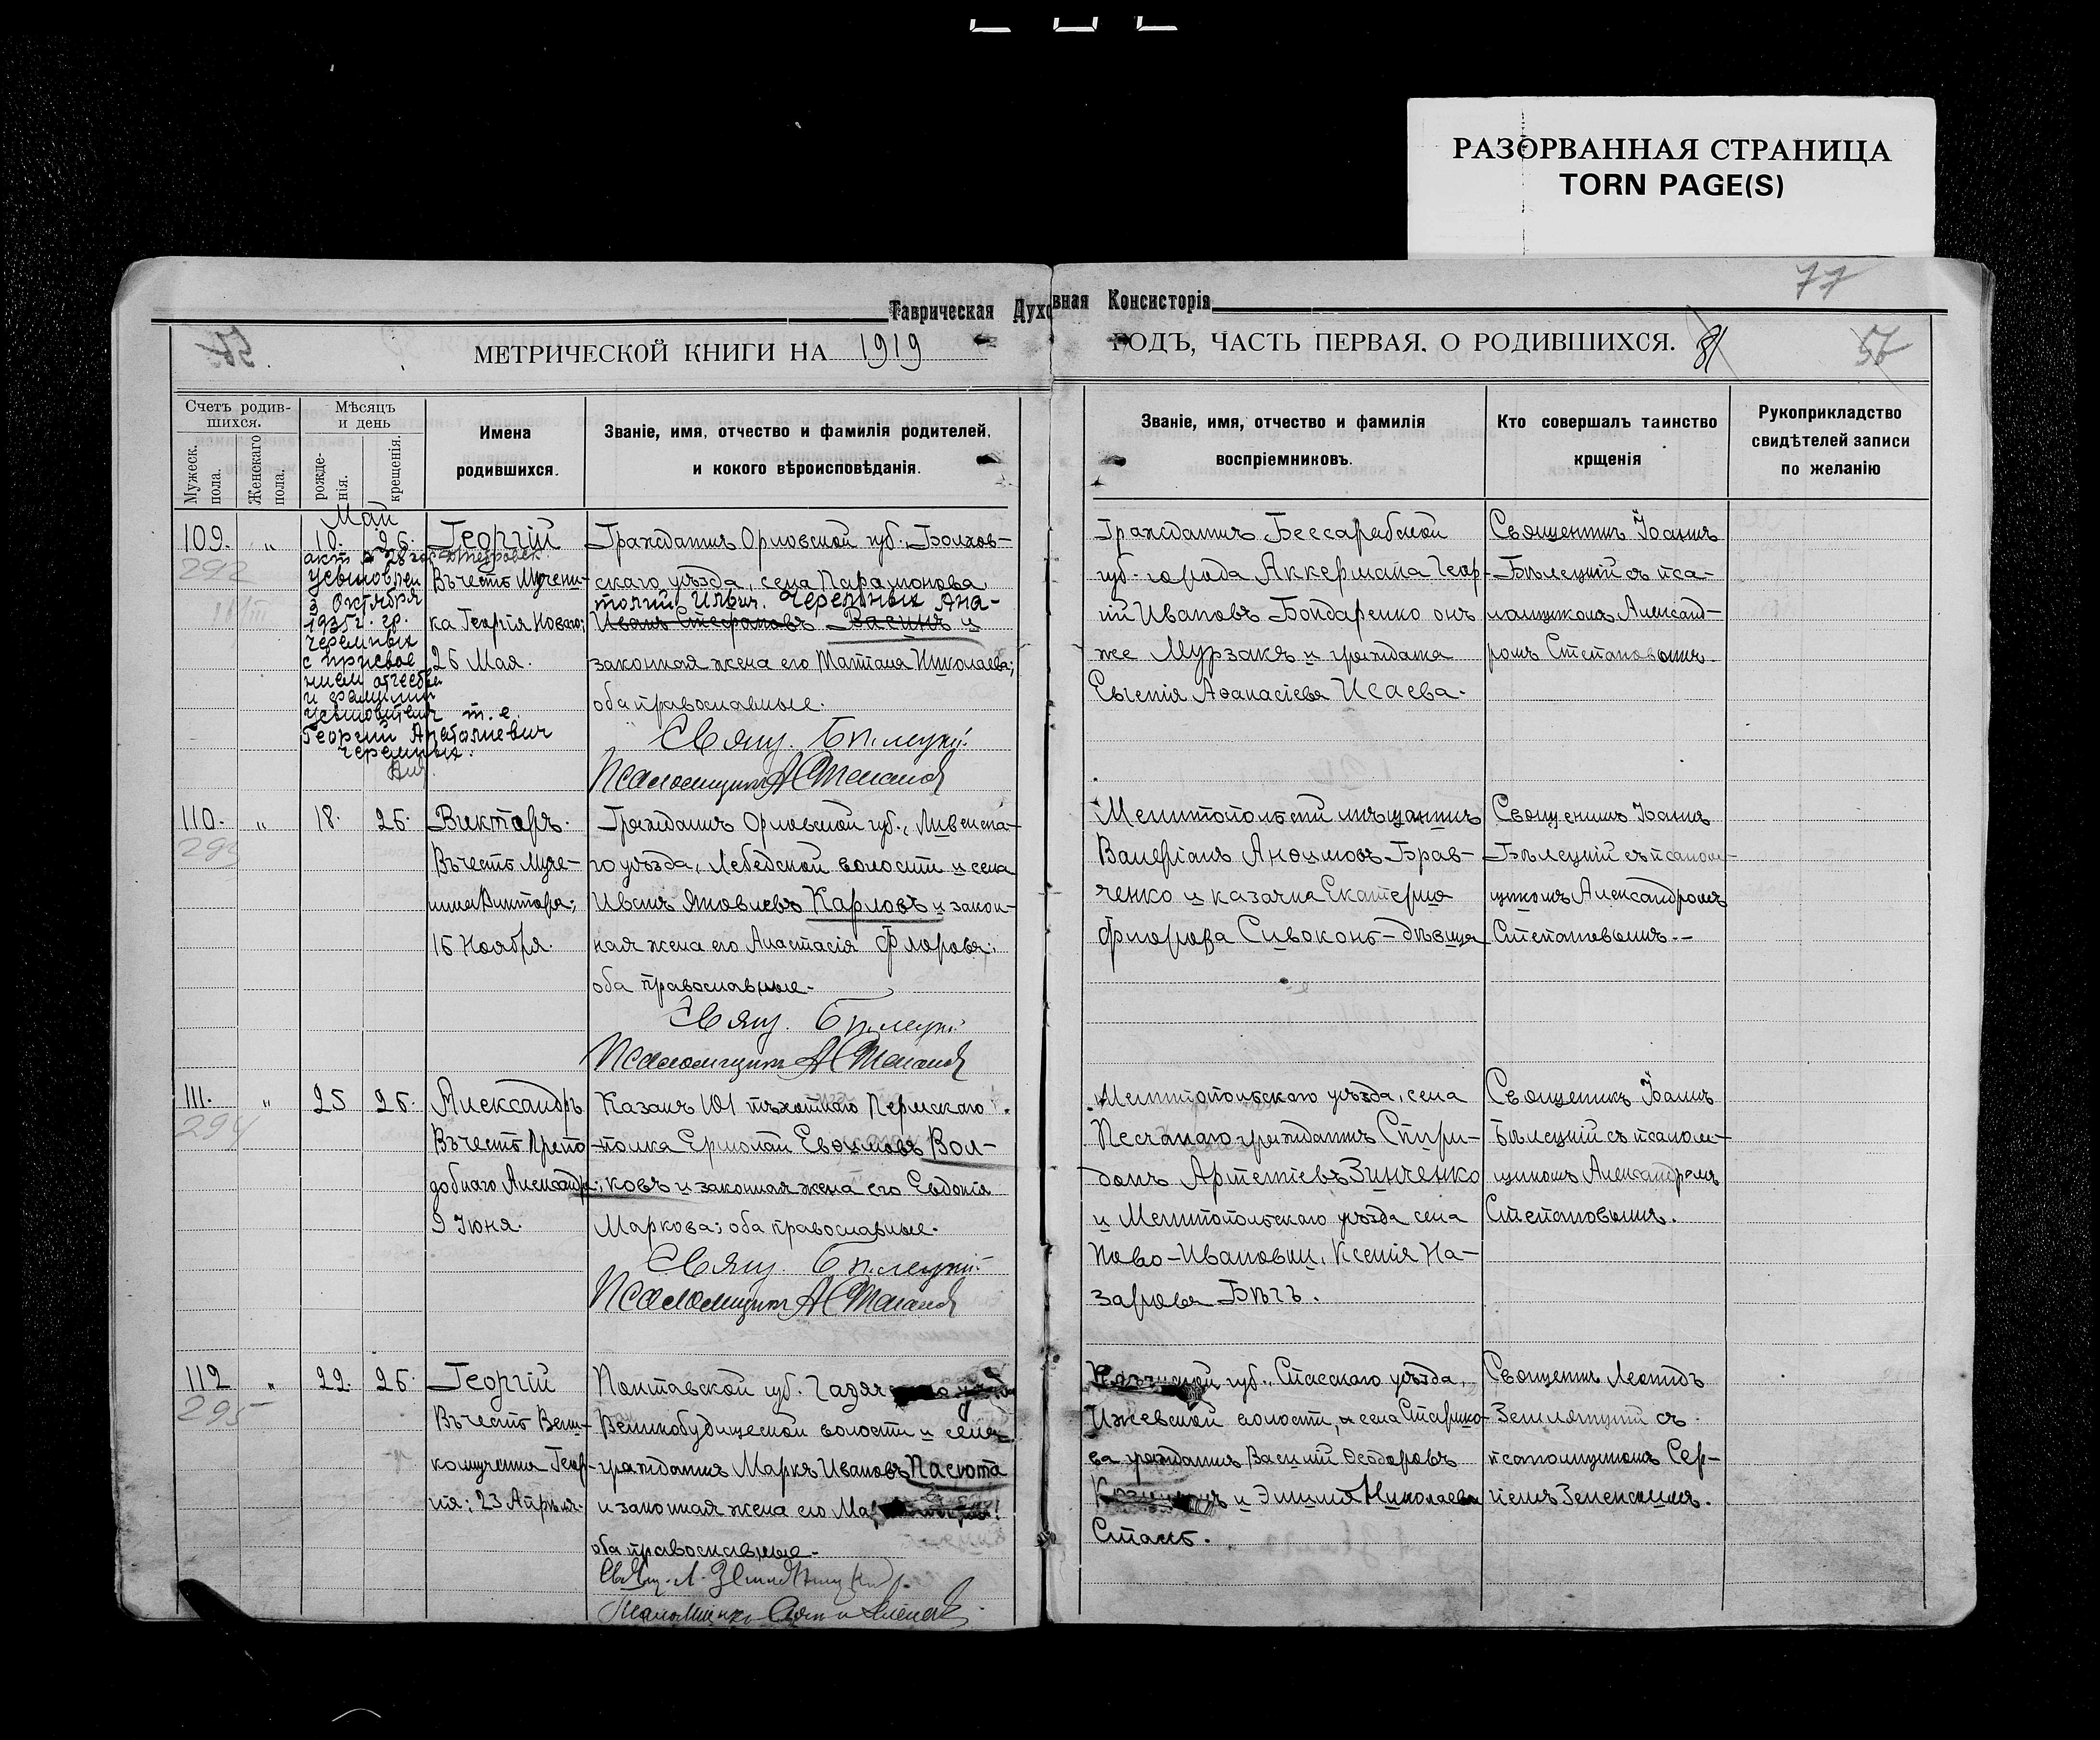 РАЗОРВАННАЯ СТРАНИЦА
TORN PAGE(S)
77
Таврическая Духовная Консисторія
МЕТРИЧЕСКОЙ КНИГИ НА 1919 ГОДЪ, ЧАСТЬ ПЕРВАЯ. О РОДИВШИХСЯ. 81
56
Счетъ родив-
шихся.
Мужеск. пола.
Женскаго пола.
Мѣсяцъ
и день
рожде-
нія.
крещенія.
Имена
родившихся.
Званіе, имя, отчество и фамилія родителей,
и кокого вѣроисповѣданія.
Званіе, имя, отчество и фамилія
воспріемниковъ.
Кто совершалъ таинство
крщенія
Рукоприкладство
свидѣтелей записи
по желанію
Май
109. " 10. 26. Георгій
292
Въ честь Мучени-
ка Георгія Новаго;
26 Мая.
усыновлен
3 Октября
1935 г. гр.
Черемных
с присвое-
нием отчества
и фамилии
усыновителя т. е.
Георгий Анатолиевич
Черемных.
Гражданинъ Орловской губ. Болхов-
скаго уѣзда, села Парамонова,
толий Ильич. Черемных Ана-
Иванъ Стефановъ Васинъ и
законная жена его Татіана Николаева;
оба православные.
Свящ. Бѣлецкій
Псаломщикъ А Степановъ
Гражданинъ Бессарабской
губ. города Аккермана Геор-
гій Ивановъ Бондаренко онъ
же Мурзакъ и гражданка
Евгенія Аѳанасіева Исаева.
Священникъ Іоаннъ
Бѣлецкій съ пса-
ломщикомъ Александ-
ромъ Степановымъ.
110. " 18. 26. Викторъ.
293
Въ честь Муче-
ника Виктора;
15 Ноября.
Гражданинъ Орловской губ., Ливенска-
го уѣзда, Лебедской волости и села
Иванъ Яковлевъ Карловъ и закон-
ная жена его Анастасія Флорова;
оба православные.
Свящ. Бѣлецкій
Псаломщикъ А Степановъ
Мелитопольскій мѣщанинъ
Валеріанъ Анѳимовъ Брав-
ченко и казачка Екатерина
Флорова Сивоконь - дѣвица
Священникъ Іоаннъ
Бѣлецкій съ псалом-
щикомъ Александромъ
Степановымъ.
111. " 25 26. Александръ
294
Въ честь Препо-
добнаго Александра;
9 Іюня.
Казакъ 101 пѣхотнаго Пермскаго
полка Ермолай Евѳимовъ Вол-
ковъ и законная жена его Евдокія
Маркова; оба православные.
Свящ. Бѣлецкій
Псаломщикъ А Степановъ
Мелитопольскаго уѣзда, села
Песчанаго гражданинъ Спири-
донъ Артеміевъ Зинченко
и Мелитопольскаго уѣзда села
Ново-Ивановки, Ксенія На-
зарова Бѣгъ.
Священникъ Іоаннъ
Бѣлецкій съ псалом-
щикомъ Александромъ
Степановымъ.
112 " 22. 26. Георгій
295
Въ честь Вели-
комученика Геор-
гія; 23 Апрѣля.
Полтавской губ. Гадяч
Великобудищеской волости и села
гражданинъ Маркъ Ивановъ Пасюта
и законная жена его Ма
оба православные.
губ., Спасскаго уѣзда,
Ижевской волости, и села Старико-
ва гражданинъ Василій Ѳеодоровъ
и Эмилія Николаева
Сталь.
Священникъ Леонидъ
Земляницкій съ
псаломщикомъ Сер-
гіемъ Зеленскимъ.